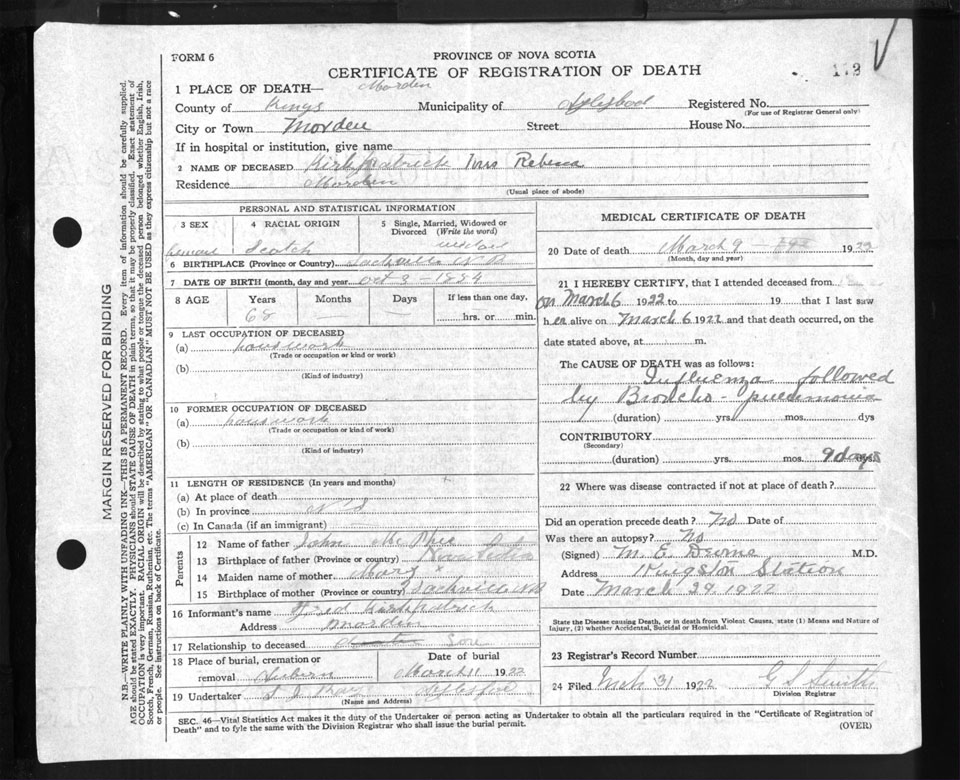 FORM 6
PROVINCE OF NOVA SCOTIA
CERTIFICATE OF REGISTRATION OF DEATH
1 PLACE OF DEATH— Morden
County of Kings Municipality of Registered No.
(For use of Registrar General only)
City or Town Morden Street House No.
If in hospital or institution, give name
2 NAME OF DECEASED Kirkpatrick
Residence Morden
(Usual place of abode)
MARGIN RESERVED FOR BINDING
N.B.—WRITE PLAINLY WITH UNFADING INK—THIS IS A PERMANENT RECORD. Every item of information should be carefully supplied.
AGE should be stated EXACTLY. PHYSICIANS should STATE CAUSE OF DEATH in plain terms, so that it may be properly classified. Exact statement of
OCCUPATION is very important. RACIAL ORIGIN will be described by stating to what people or tongue the deceased person belonged whether English, Irish,
Scotch, French, German, Russian, Ruthenian, etc. The terms "AMERICAN" OR "CANADIAN" MUST NOT BE USED as they express citizenship but not a race
or people. See instructions on back of Certificate.
PERSONAL AND STATISTICAL INFORMATION
3 SEX
4 RACIAL ORIGIN Scotch
5 Single, Married, Widowed or Divorced (Write the word)
6 BIRTHPLACE (Province or Country) Sackville N B
7 DATE OF BIRTH (month, day and year)
8 AGE Years 68 Months Days If less than one day,
hrs. or min.
9 LAST OCCUPATION OF DECEASED
(a) housework
(Trade or occupation or kind or work)
(b)
(Kind of industry)
10 FORMER OCCUPATION OF DECEASED
(a) housework
(Trade or occupation or kind of work)
(b)
(Kind of industry)
11 LENGTH OF RESIDENCE (In years and months)
(a) At place of death
(b) In province N S
(c) In Canada (if an immigrant)
Parents
12 Name of father John
13 Birthplace of father (Province or country) Nova Scotia
14 Maiden name of mother Mary
15 Birthplace of mother (Province or country) Sackville N B
16 Informant's name Fred Kirkpatrick
Address Morden
17 Relationship to deceased Son
18 Place of burial, cremation or
removal Auburn
Date of burial
March 11 1922
19 Undertaker
(Name and Address)
MEDICAL CERTIFICATE OF DEATH
20 Date of death March 9 1922
(Month, day and year)
21 I HEREBY CERTIFY, that I attended deceased from
on March 6 1922 to 19 that I last saw
her alive on March 6 1922 and that death occurred, on the
date stated above, at m.
The CAUSE OF DEATH was as follows:
Influenza followed
by Broncho-pneumonia
(duration) yrs. mos. dys
CONTRIBUTORY
(Secondary)
(duration) yrs. mos. 9 days
22 Where was disease contracted if not at place of death?
Did an operation precede death? No Date of
Was there an autopsy? No
(Signed) M. E. M.D.
Address Kingston Station
Date March 29 1922
State the Disease causing Death, or in death from Violent Causes, state (1) Means and Nature of
Injury, (2) whether Accidental, Suicidal or Homicidal.
23 Registrar's Record Number
24 Filed Mch 31 1922 G S Smith
Division Registrar
SEC. 46—Vital Statistics Act makes it the duty of the Undertaker or person acting as Undertaker to obtain all the particulars required in the "Certificate of Registration of
Death" and to fyle the same with the Division Registrar who shall issue the burial permit.
(OVER)